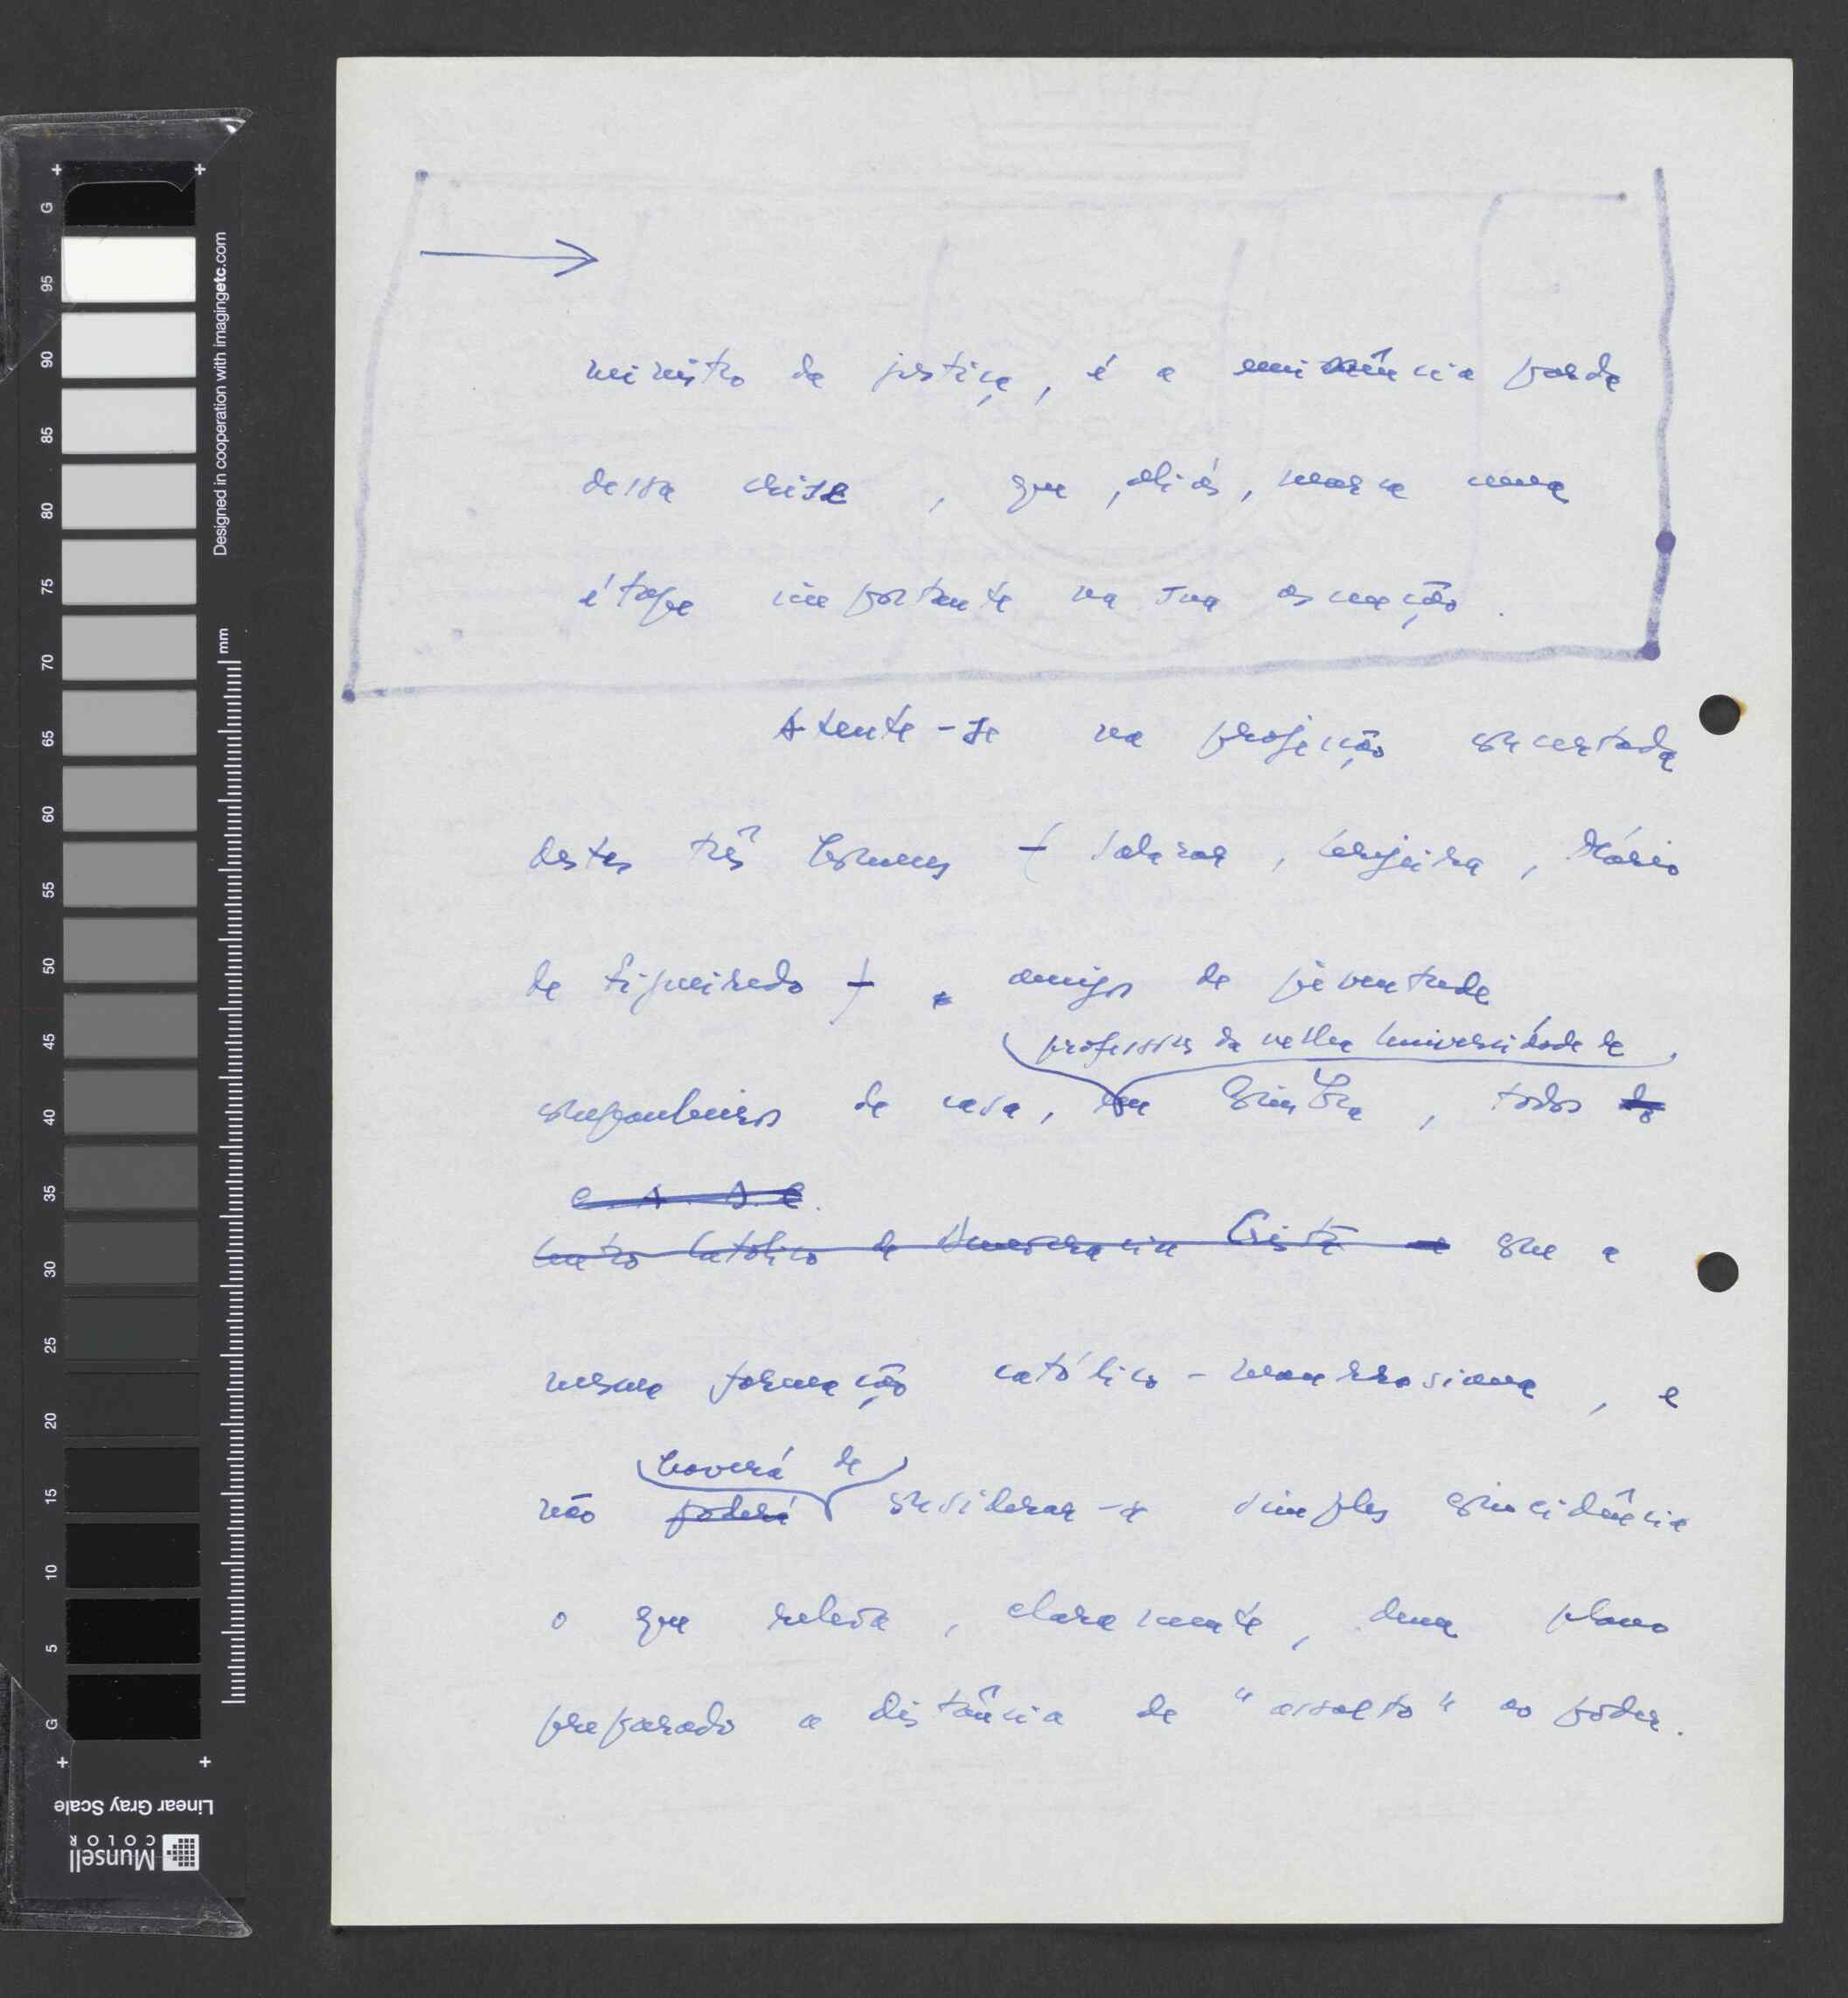 ministro da justiça, é a eminência parda
dessa crise, que, aliás, marca uma
étape importante na sua
Atente-se na projecção concertada
destes três homens (Salazar, Cerejeira, Mário
de Figueiredo) amigos de juventude
professores da velha Universidade de
companheiros de casa, em Coimbra, todos do
C. A. D. C.
Centro Católico de Democracia Cristã e com a
mesma formação católico-maurrasiana, e
haverá de
não poderá considerar-se simples coincidência
o que releva, claramente, dum plano
preparado a distância de "assalto" ao poder.
G 95 90 85 80 75 70 65 60 55 50 45 40 35 30 25 20 15 10 5 G
Designed in cooperation with imagingetc.com
mm
Linear Gray Scale
Munsell
COLOR